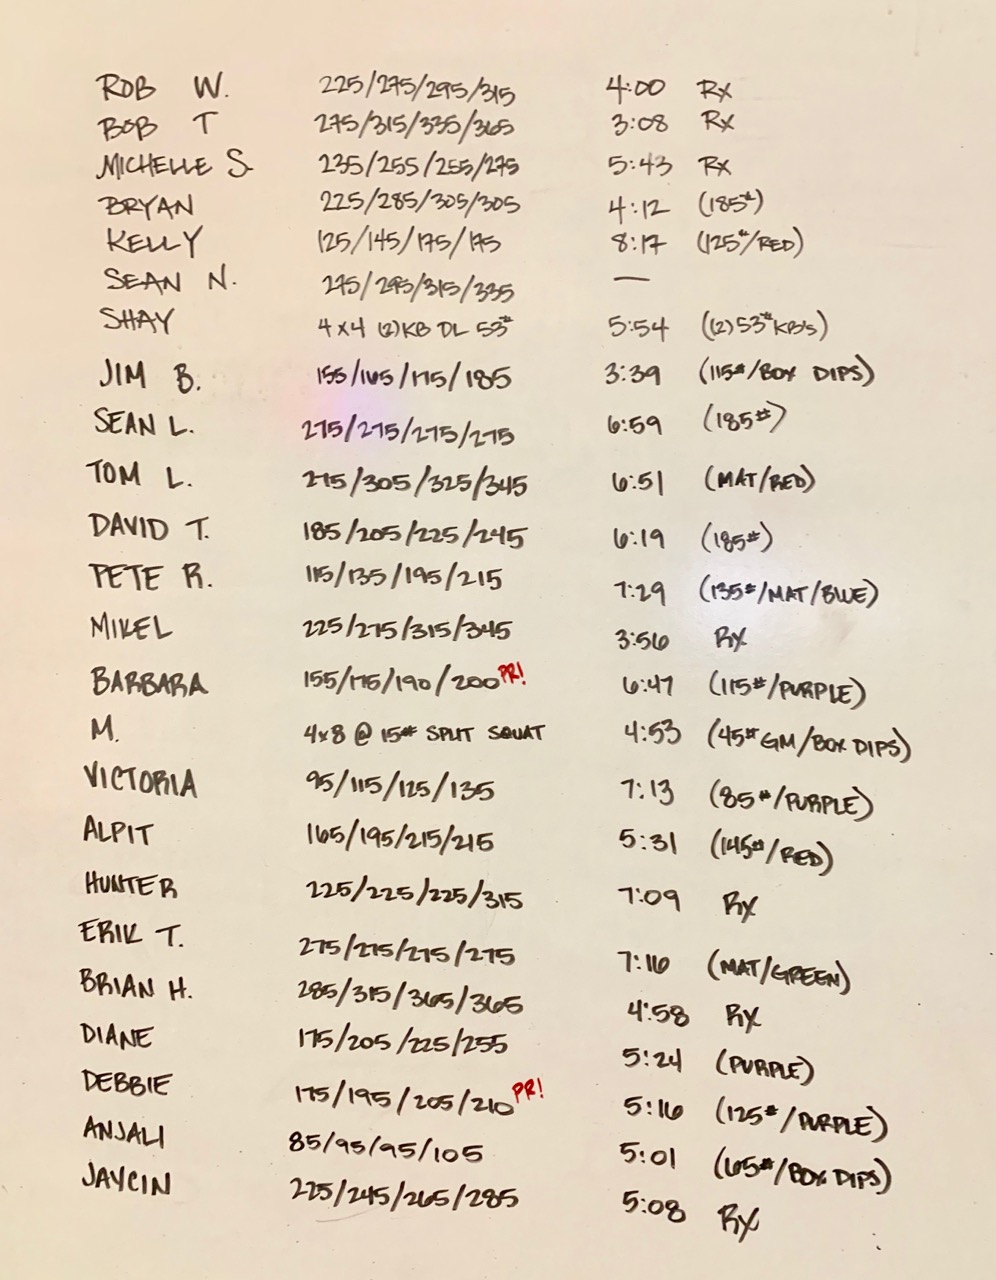 ROB W. 225/275/295/315 4:00 RX
BOB T 275/315/335/365 3:08 RX
MICHELLE S. 235/255/255/275 5:43 RX
BRYAN 225/285/305/305 4:12 (185#)
KELLY 125/145/175/175 8:17 (125#/RED)
SEAN N. 275/295/315/335 —
SHAY 4x4 (2)KB DL 53# 5:54 ((2)53#KB's)
JIM B. 155/165/175/185 3:39 (115#/BOX DIPS)
SEAN L. 275/275/275/275 6:59 (185#)
TOM L. 275/305/325/345 6:51 (MAT/RED)
DAVID T. 185/205/225/245 6:19 (185#)
PETE R. 115/135/195/215 7:29 (135#/MAT/BLUE)
MIKEL 225/275/315/345 3:56 RX
BARBARA 155/175/190/200 PR! 6:47 (115#/PURPLE)
M. 4x8 @ 15# SPLIT SQUAT 4:53 (45# GM/BOX DIPS)
VICTORIA 95/115/125/135 7:13 (85#/PURPLE)
ALPIT 165/195/215/215 5:31 (145#/RED)
HUNTER 225/225/225/315 7:09 RX
ERIK T. 275/275/275/275 7:16 (MAT/GREEN)
BRIAN H. 285/315/365/365 4:58 RX
DIANE 175/205/225/255 5:24 (PURPLE)
DEBBIE 175/195/205/210 PR! 5:16 (125#/PURPLE)
ANJALI 85/95/95/105 5:01 (65#/BOX DIPS)
JAYCIN 225/245/265/285 5:08 RX